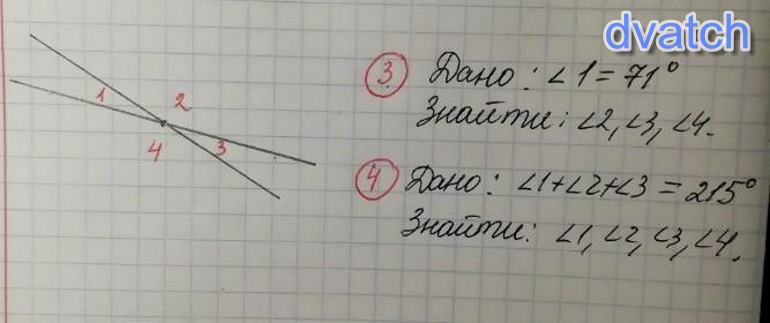 dvatch
1 2
4 3
3 Дано: ∠1 = 71°
Знайти: ∠2, ∠3, ∠4.
4 Дано: ∠1+∠2+∠3 = 215°
Знайти: ∠1, ∠2, ∠3, ∠4.